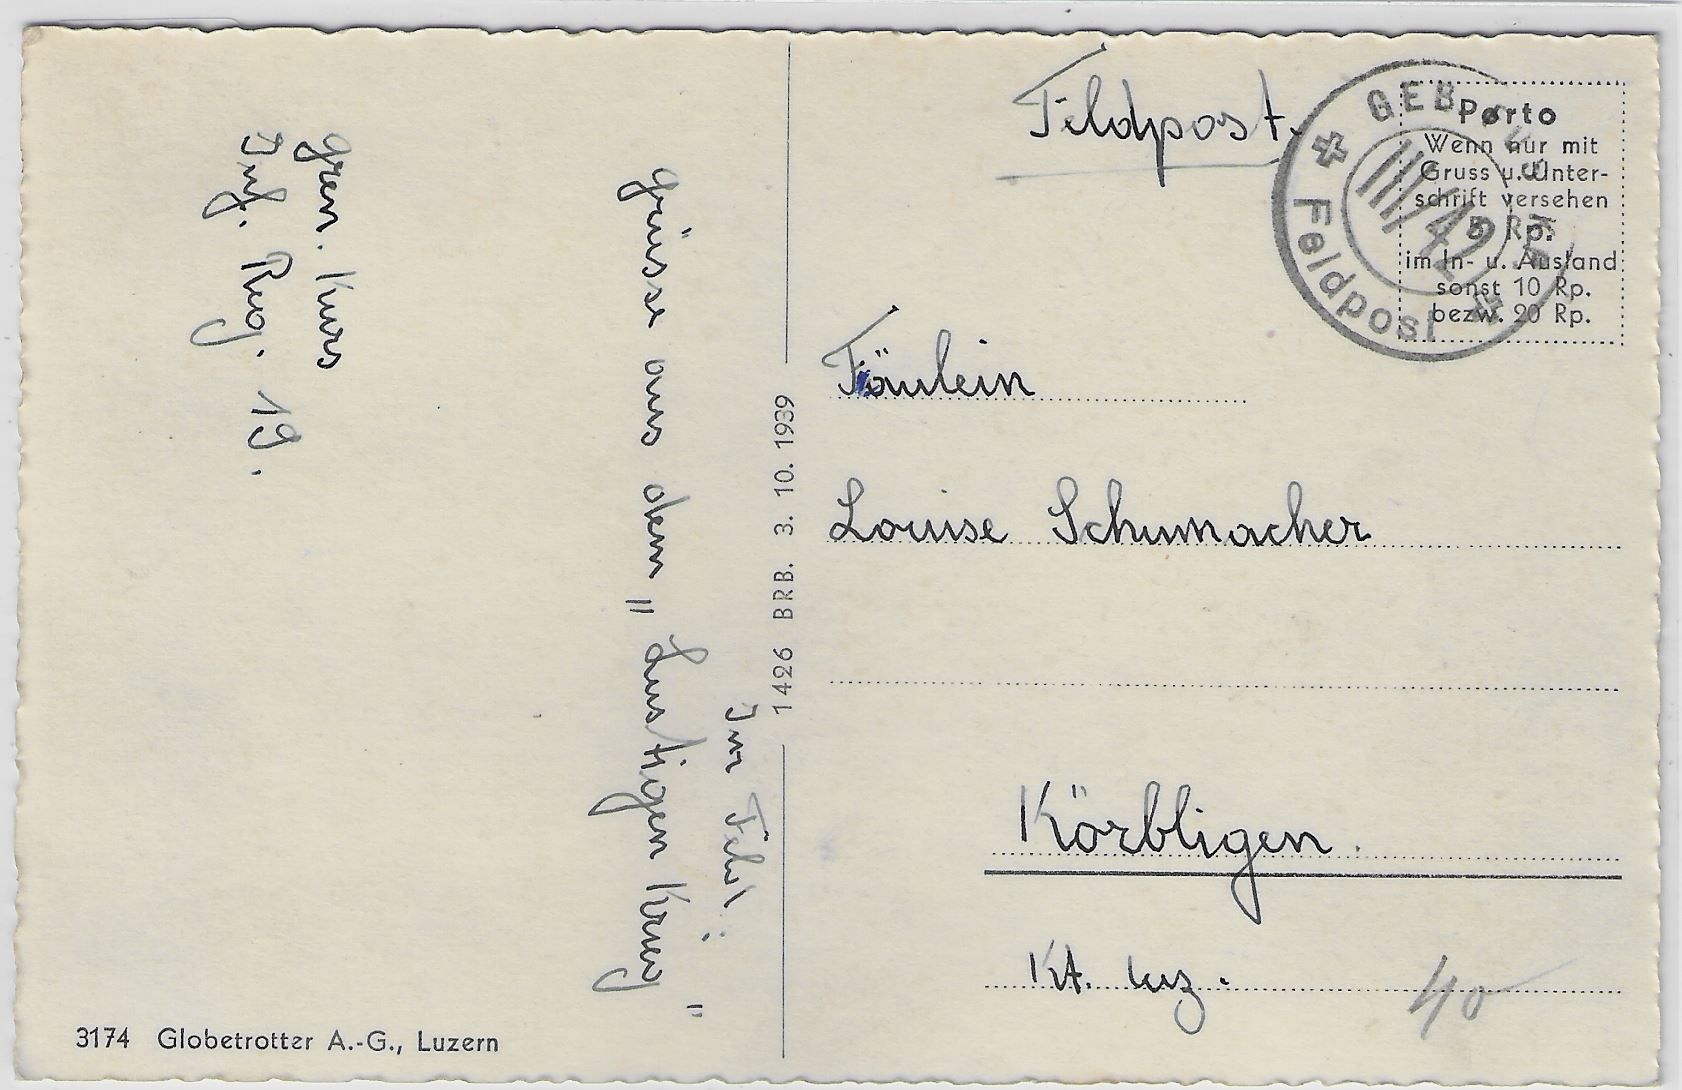 Feldpost.
GEB. Füs Kp
III/42
Feldpost
Porto
Wenn nur mit
Gruss u. Unter-
schrift versehen
5 Rp.
im In- u. Ausland
sonst 10 Rp.
bezw. 20 Rp.
Fräulein
Louise Schumacher
Körbligen.
Kt. Luz.
40
1426 BRB. 3. 10. 1939
Im Feld:
Grüsse aus dem "Lustigen Krieg"
Gren. Kurs
Inf. Reg. 19.
3174 Globetrotter A.-G., Luzern